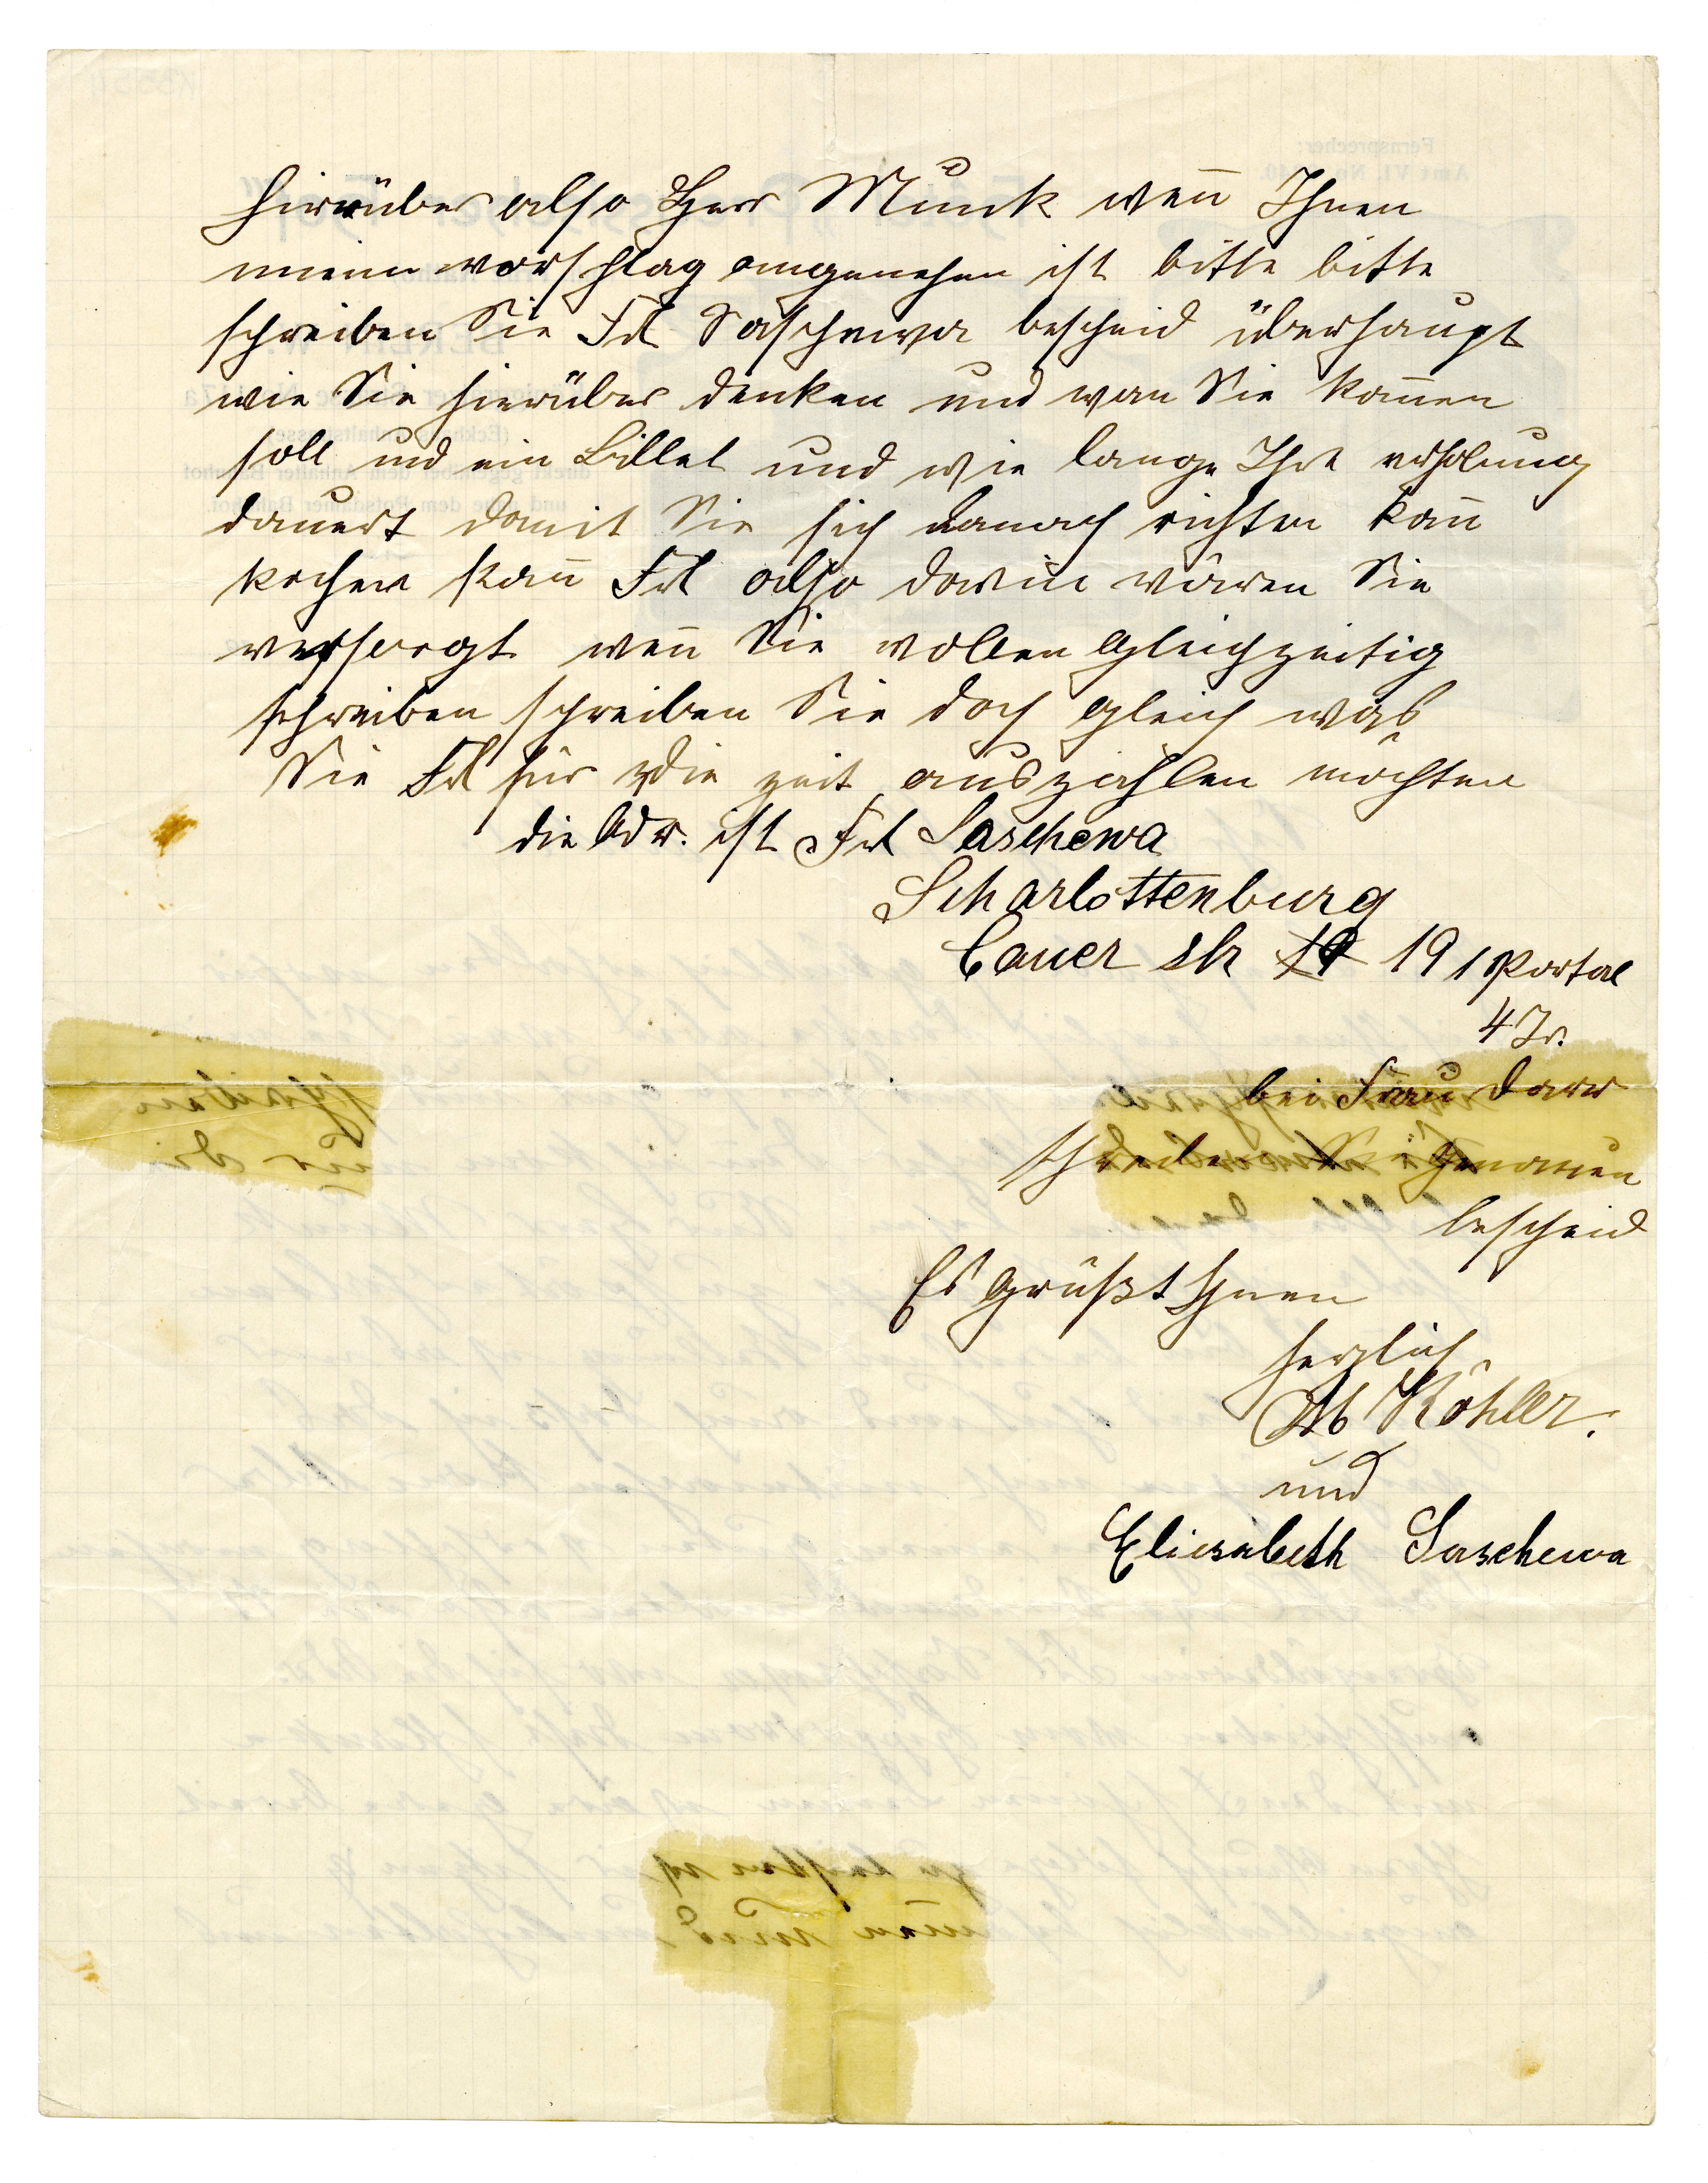 hierüber also Herr Munk wen̅ Ihnen
meinn vorschlag angenehm ist bitte bitte
schreiben Sie Frl Saschewa bescheid überhaupt
wie Sie hierüber denken und wan Sie kom̅en
soll und ein Billet und wie lange Ihre erholung
dauert damit Sie sich danach richten kan̅
kochen kan̅ Frl also darin wären Sie
versorgt wen̅ Sie wollen gleichzeitig
schreiben schreiben Sie doch gleich was
Sie Frl für die zeit auszahlen möchten
die Adr. ist Frl Saschewa
Scharlottenburg
Cauer str 19 1 Portal
4 Tr.
bei Frau
genauen
bescheid
Es grüßt Ihnen
herzlich
Köhler.
und
Eliesabeth Saschewa